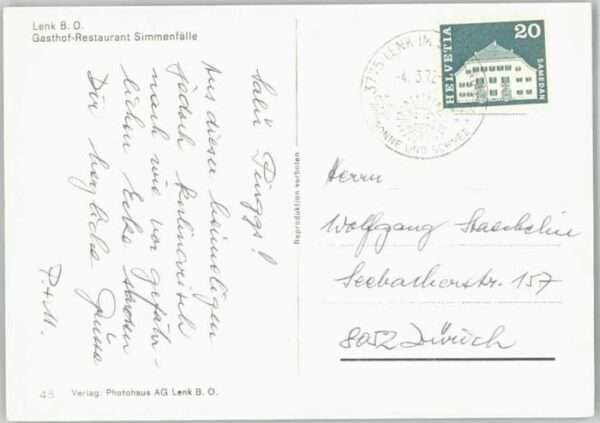 Lenk B. O.
Gasthof-Restaurant Simmenfälle
Salü Pinggs!
Aus dieser heimeligen
jedoch kulinarisch
nach wie vor gefähr-
lichen Ecke
Dir herzliche Grüsse
P+M.
45 Verlag: Photohaus AG Lenk B. O.
Reproduktion verboten
3775 LENK IM
-4.3.72
SONNE UND SCHNEE
HELVETIA
20
SAMEDAN
Herrn
Wolfgang Staehelin
Seebacherstr. 157
8052 Zürich